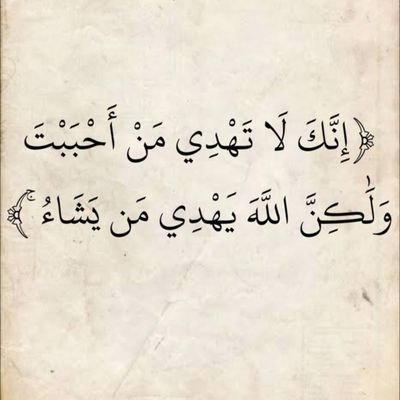 ﴿إِنَّكَ لَا تَهْدِي مَنْ أَحْبَبْتَ
وَلَٰكِنَّ اللَّهَ يَهْدِي مَن يَشَاءُ ۚ﴾